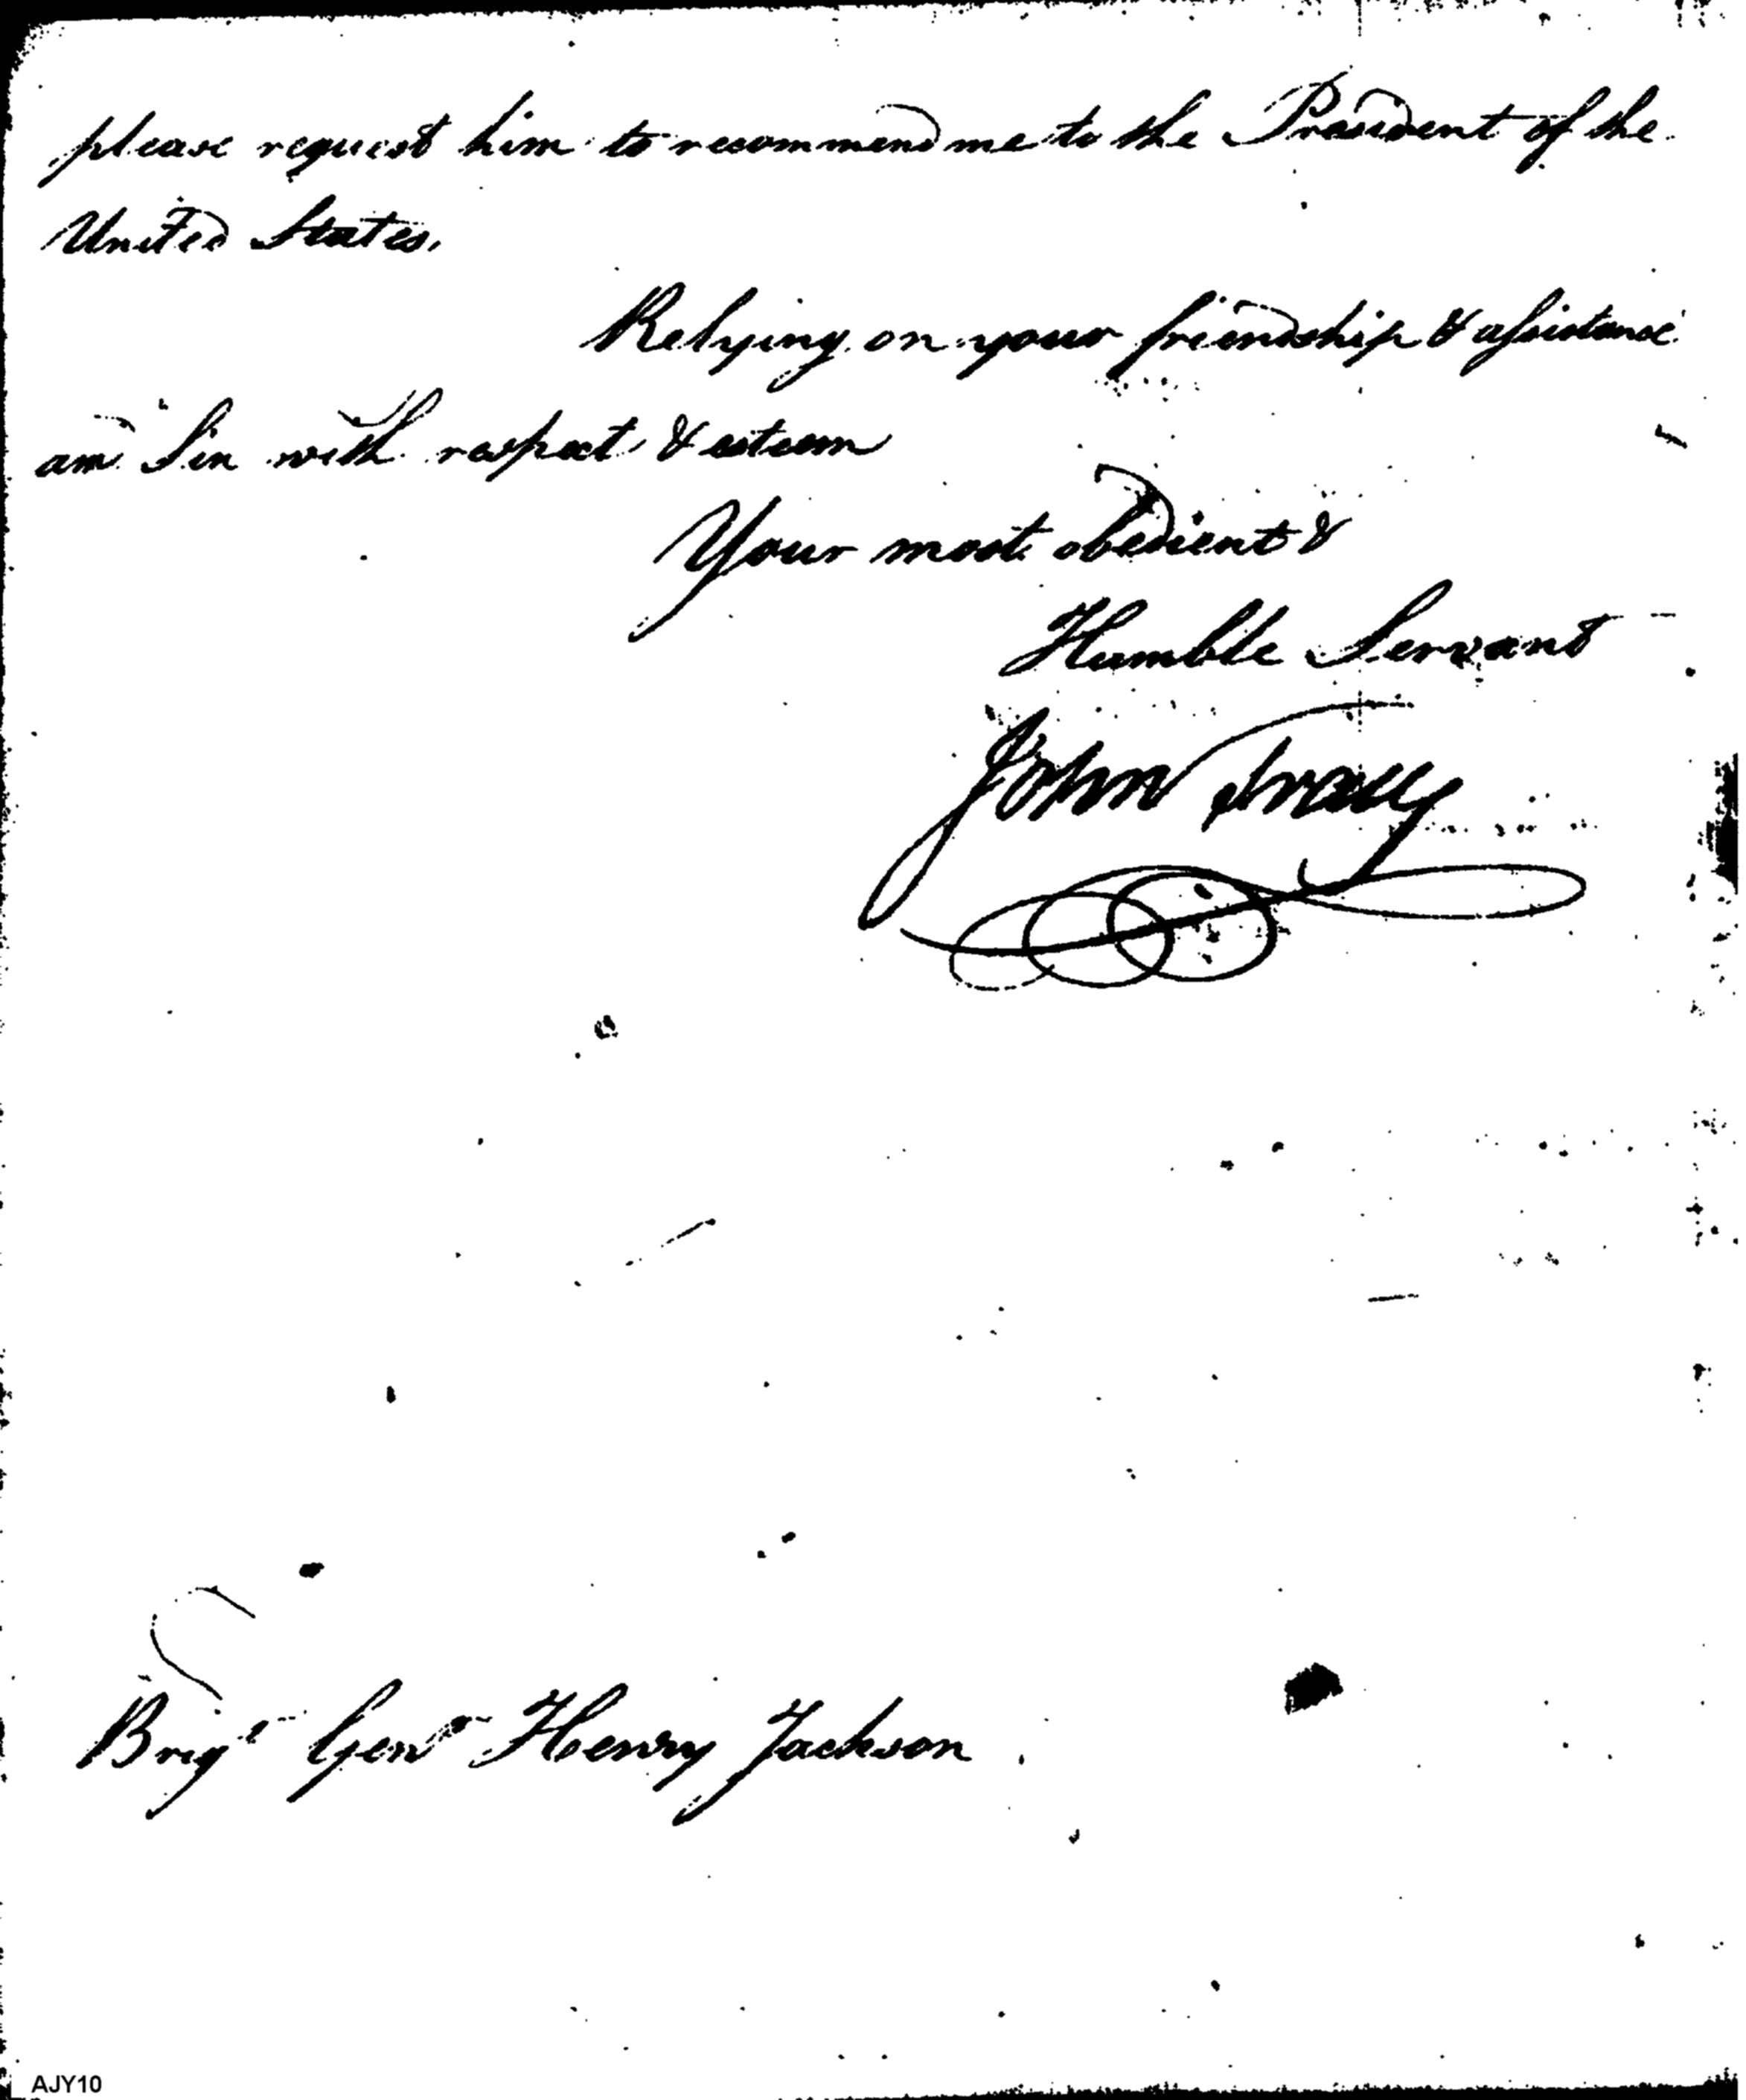 please request him to recommend me to the President of the
United States.
Relying on your friendship & assistance
am Sir with respect & esteem
Your most obedient &
Humble Servant
John
Brigr Genr Henry Jackson
AJY10